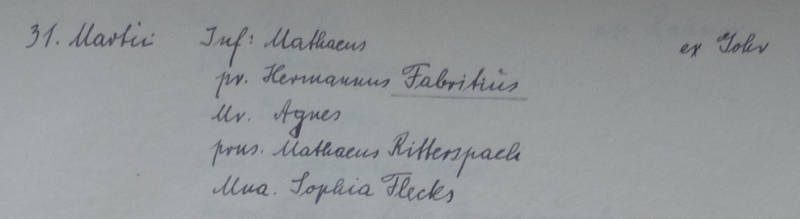 31. Martii Inf: Mathaeus ex Johr
pr. Hermannus Fabritius
Mr. Agnes
prns. Mathaeus Ritterspach
Mna. Sophia Flecks